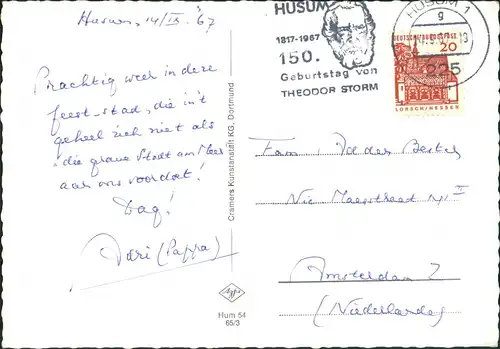 Husum, 14/IX '67
Prachtig weer in deze
feest-stad, die in't
geheel zich niet als
"die graue Stadt am Meer"
aan ons voordoet!
Dag!
(Pappa)
Cramers Kunstanstalt KG, Dortmund
Hum 54
65/3
HUSUM
1817-1967
150.
Geburtstag von
THEODOR STORM
HUSUM 1
g
225
DEUTSCHE BUNDESPOST
20
LORSCH/HESSEN
Fam.
Amsterdam Z
(Niederlande)